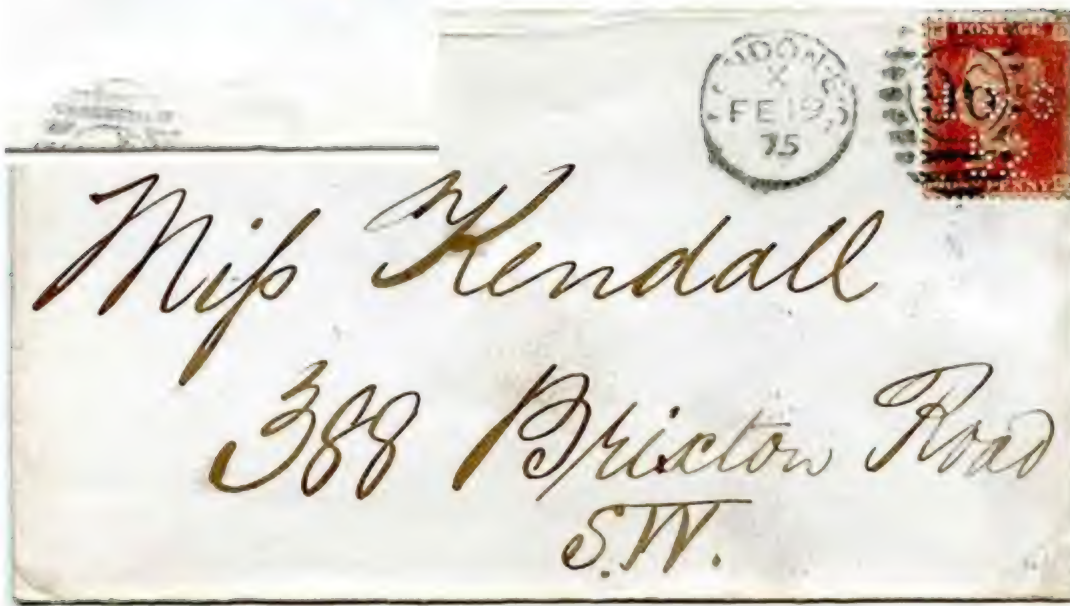 LONDON·E.C
X
FE 19
75
POSTAGE
96
PENNY
Miſs Kendall
388 Brixton Road
S.W.